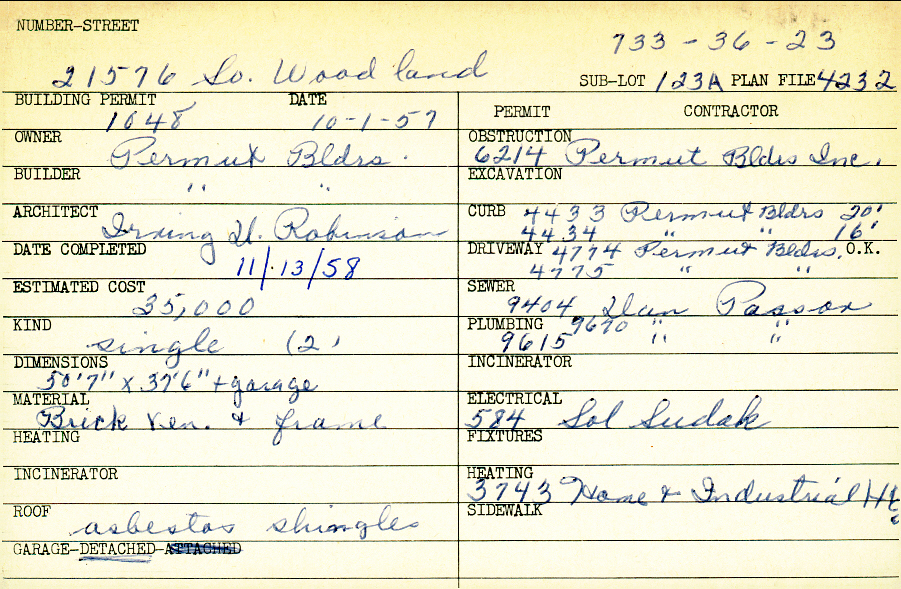 NUMBER-STREET
733-36-23
21576 So. Woodland
SUB-LOT 123A PLAN FILE 4232
BUILDING PERMIT DATE
1648 10-1-57
PERMIT CONTRACTOR
OWNER
Permut Bldrs.
OBSTRUCTION
6214 Permut Bldrs Inc.
BUILDER
" "
EXCAVATION
ARCHITECT
Irving H. Robinson
CURB 4433 Permut Bldrs 20'
4434 " " 16'
DATE COMPLETED
11/13/58
DRIVEWAY 4774 Permut Bldrs. O.K.
4775 " "
ESTIMATED COST
35,000
SEWER
9404 Dan Passov
KIND
single (2)
PLUMBING 9670 " "
9615 " "
DIMENSIONS
50'7" x 37'6" + garage
INCINERATOR
MATERIAL
Brick Ven. & frame
ELECTRICAL
584 Sol Sudak
HEATING
FIXTURES
INCINERATOR
HEATING
3743 Home & Industrial Ht
ROOF
asbestos shingles
SIDEWALK
GARAGE-DETACHED-ATTACHED